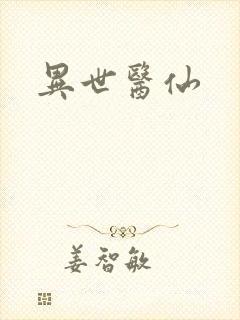 異世醫仙
姜智敏